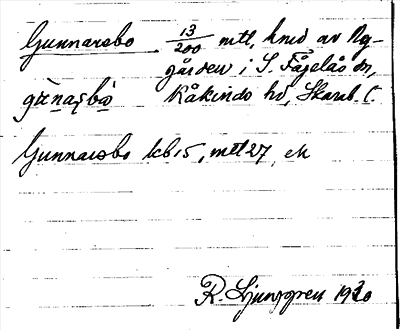 Gunnarsbo 13/200 mtl, hmd av Ny-
gården i S. Fågelås sn,
Kåkinds hd, Skarab. l.
Gunnarsbo kb 15, mtl 27, ek
R. Ljunggren 1920